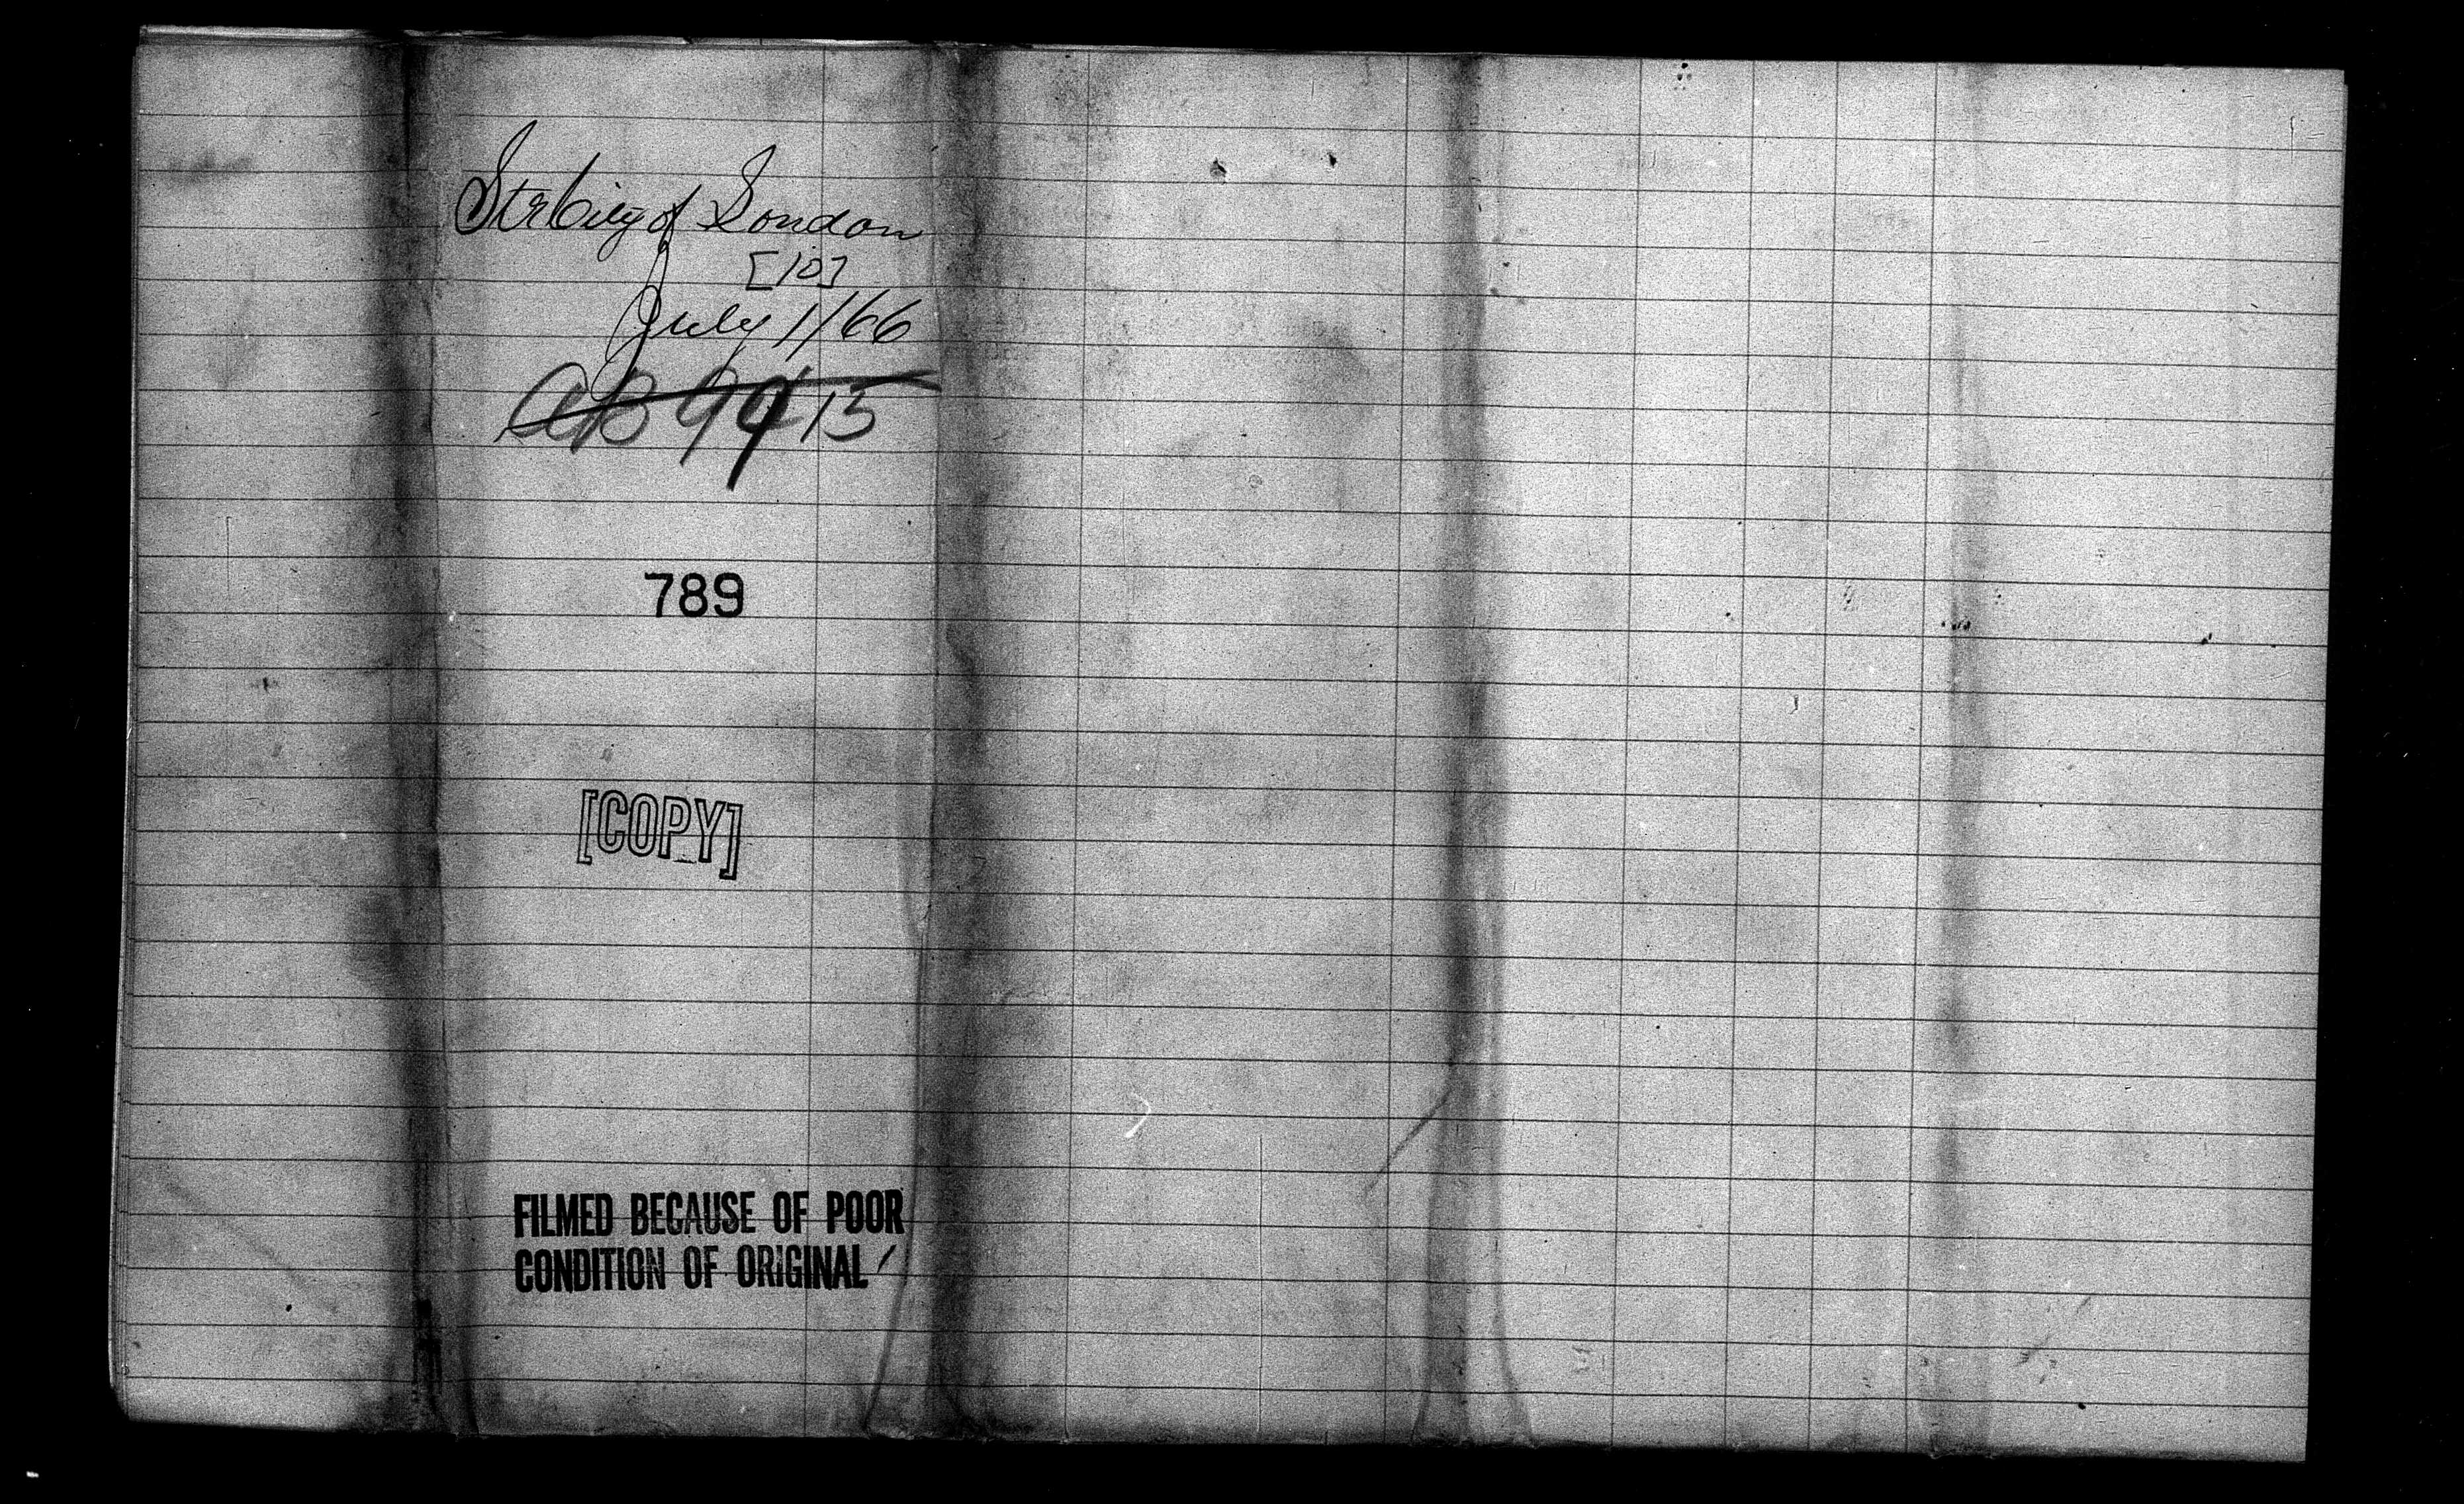 Str City of London
[10]
July 1/66
789
[COPY]
FILMED BECAUSE OF POOR
CONDITION OF ORIGINAL